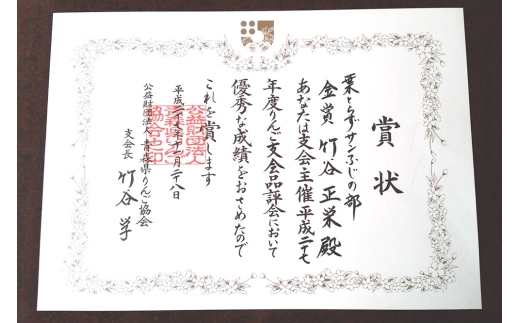 賞状
葉とらずサンふじの部
金賞 竹谷正栄殿
あなたは支会主催平成二十七
年度りんご支会品評会において
優秀な成績をおさめたので
これを賞します
平成二十八年十一月二十八日
公益財団法人青森県りんご協会
支会長 竹谷学